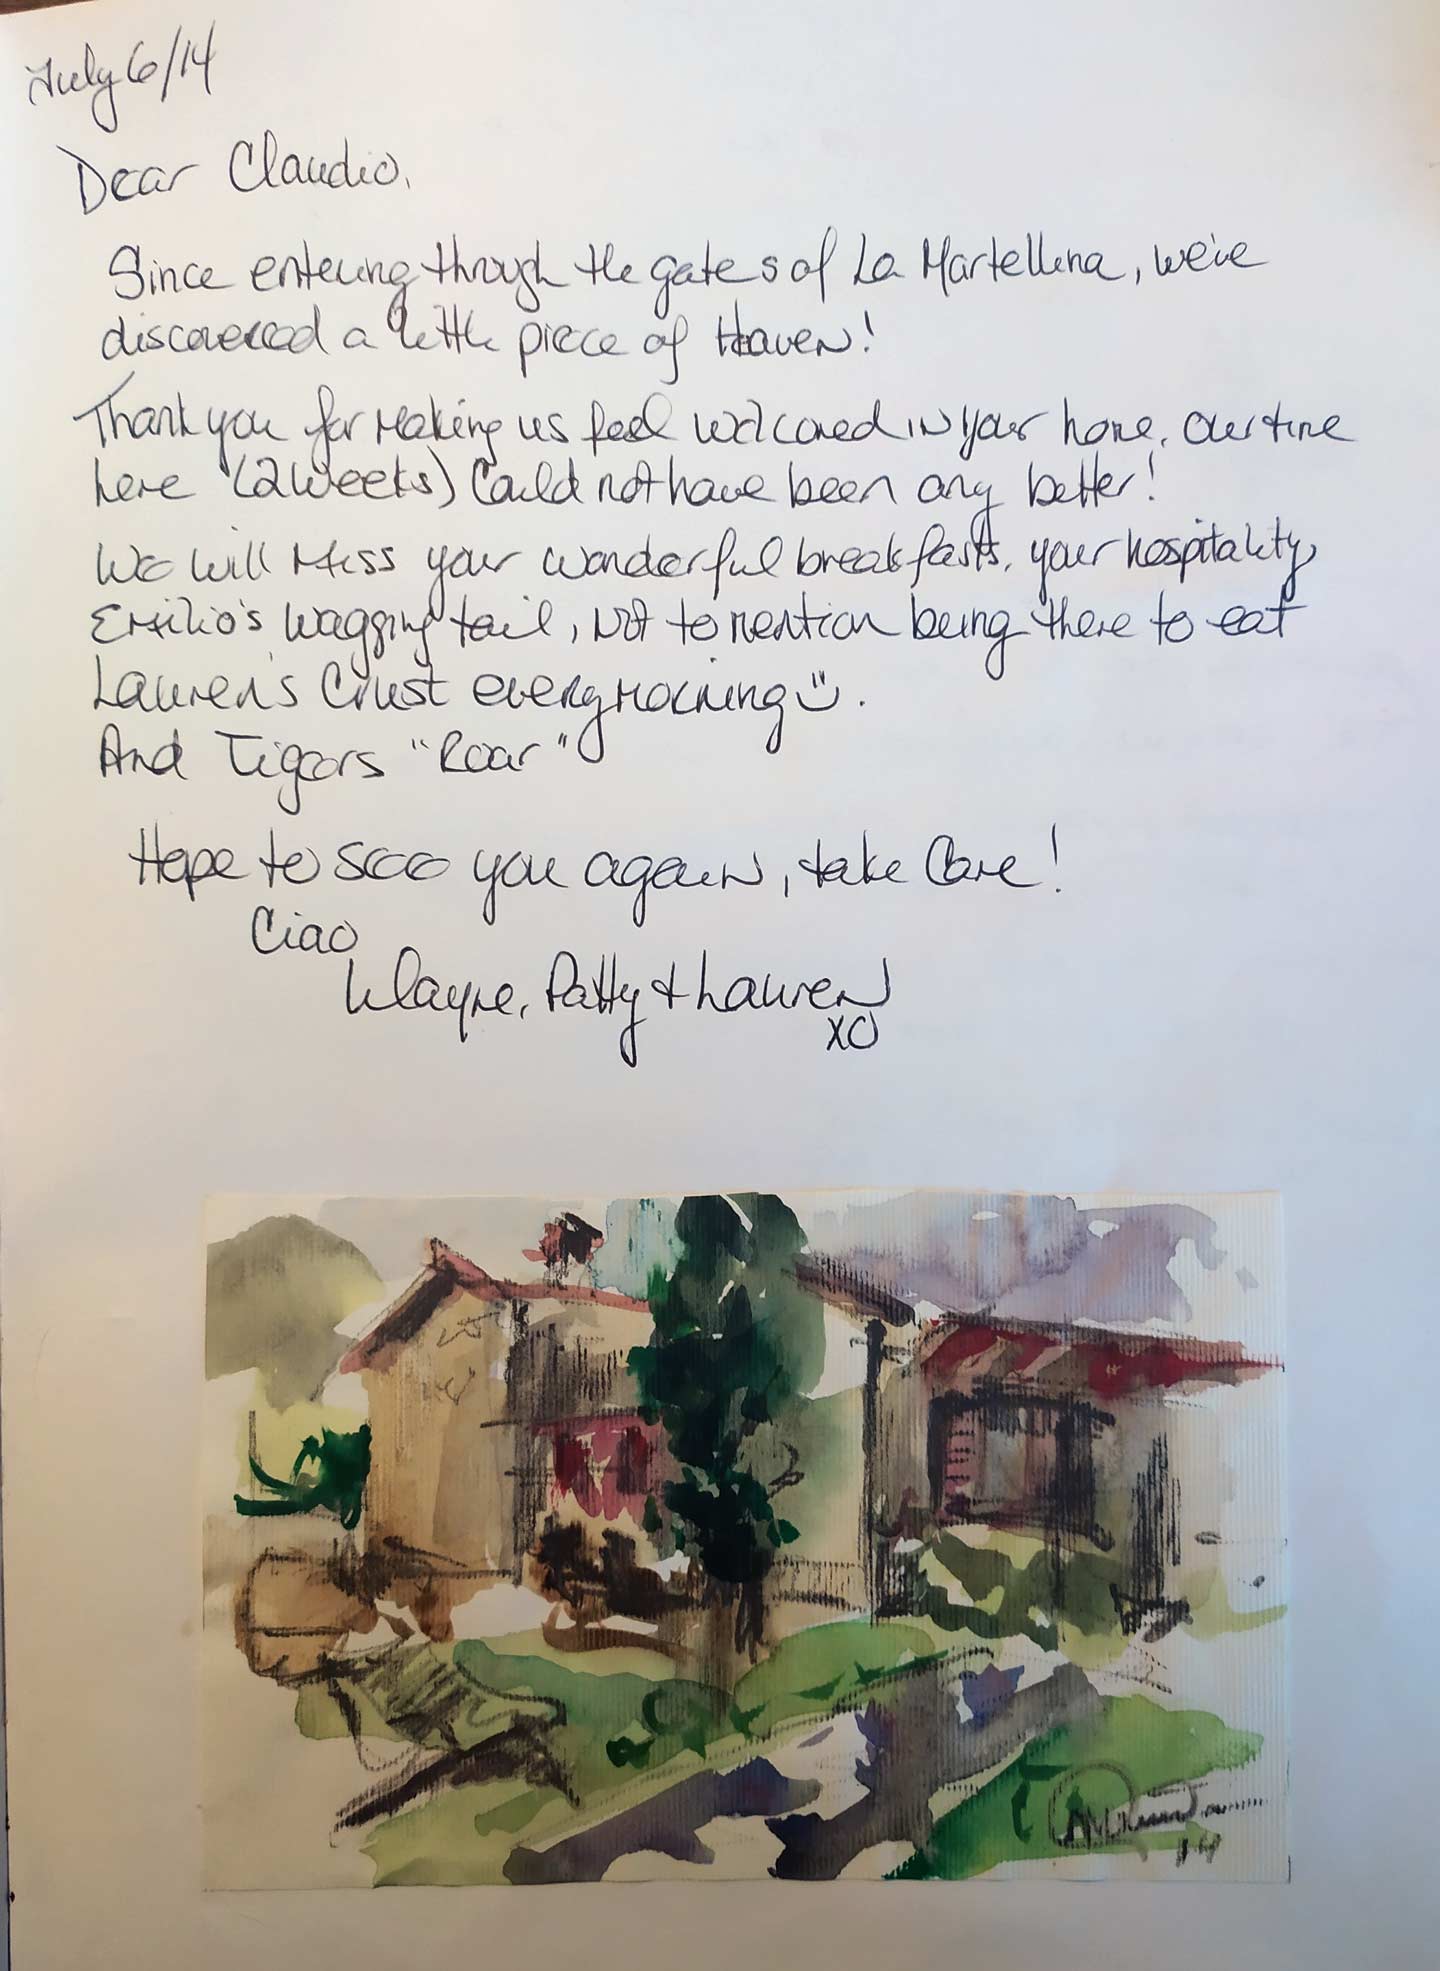 July 6/14
Dear Claudio,
Since entering through the gates of La Martellina, we've
discovered a little piece of Heaven!
Thank you for making us feel welcomed in your home. Our time
here (2 weeks) could not have been any better!
We will miss your wonderful breakfasts, your hospitality,
Emilio's wagging tail, not to mention being there to eat
Lauren's crust every morning ☺.
And Tigers "Roar"
Hope to see you again, take care!
Ciao
Wayne, Patty & Lauren
XO
14